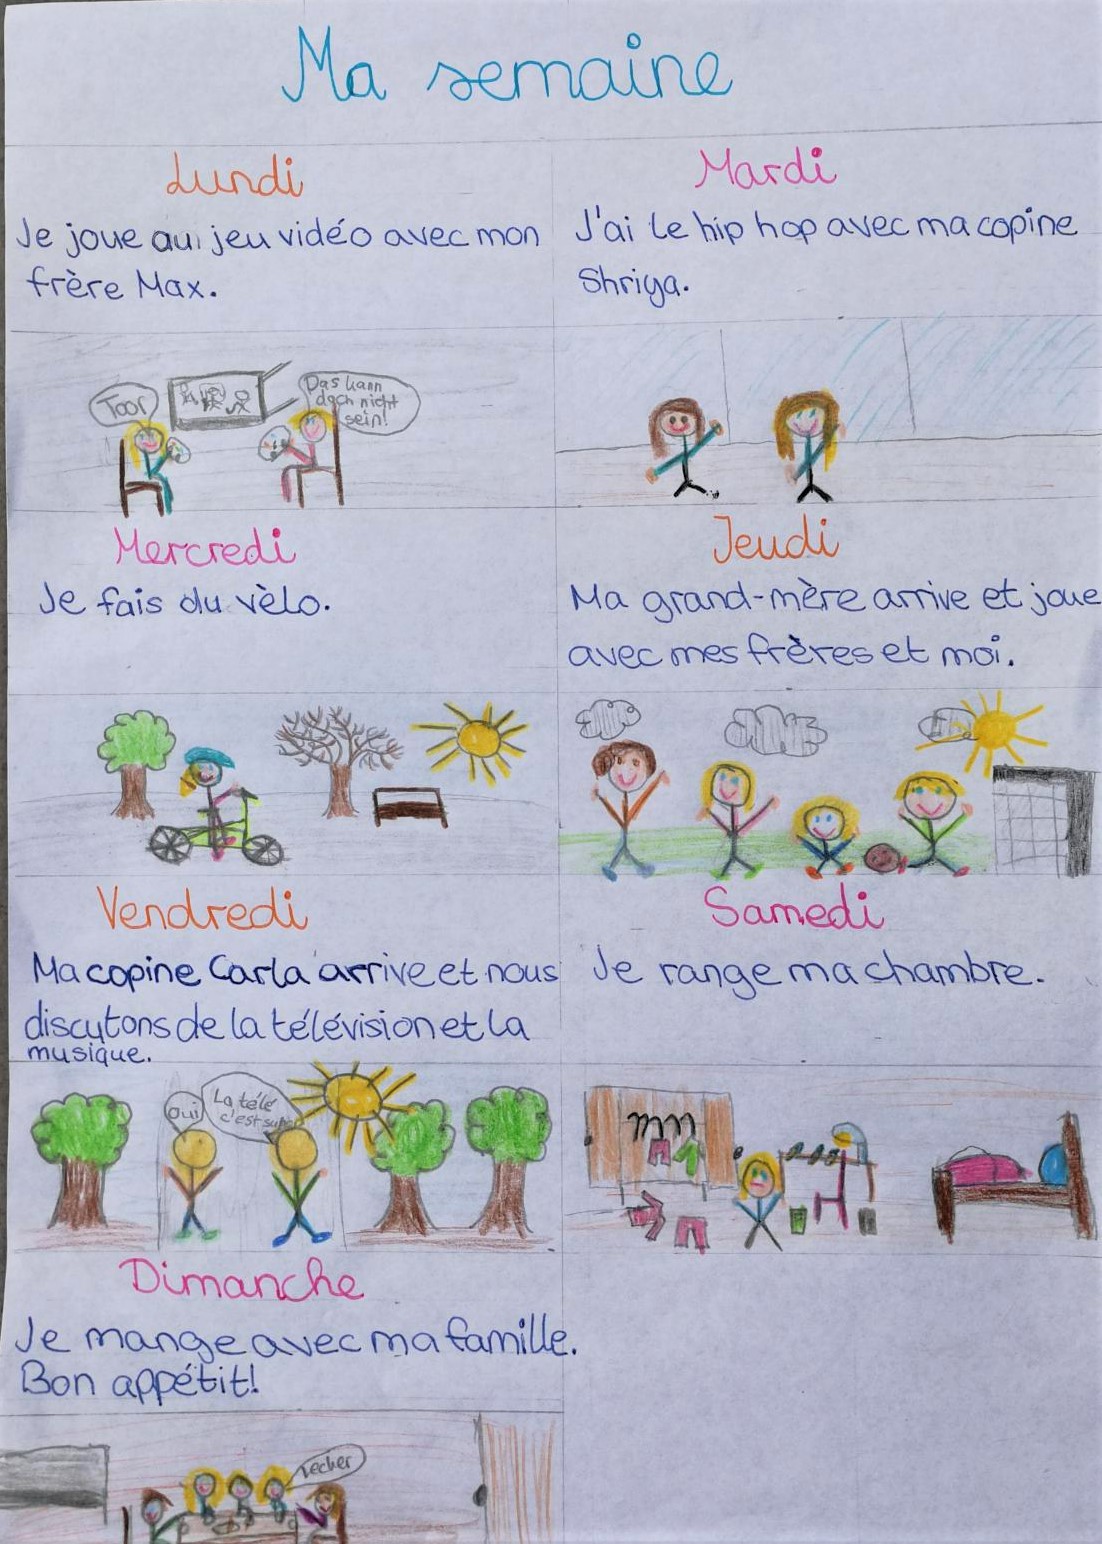 Ma semaine
Lundi
Je joue au jeu vidéo avec mon
frère Max.
Toor
Das kann
doch nicht
sein!
Mardi
J'ai le hip hop avec ma copine
Shriya.
Mercredi
Je fais du vèlo.
Jeudi
Ma grand-mère arrive et joue
avec mes frères et moi.
Vendredi
Ma copine Carla arrive et nous
discutons de la télévision et la
musique.
Oui
La télé
c'est super
Samedi
Je range ma chambre.
Dimanche
Je mange avec ma famille.
Bon appétit!
Lecker